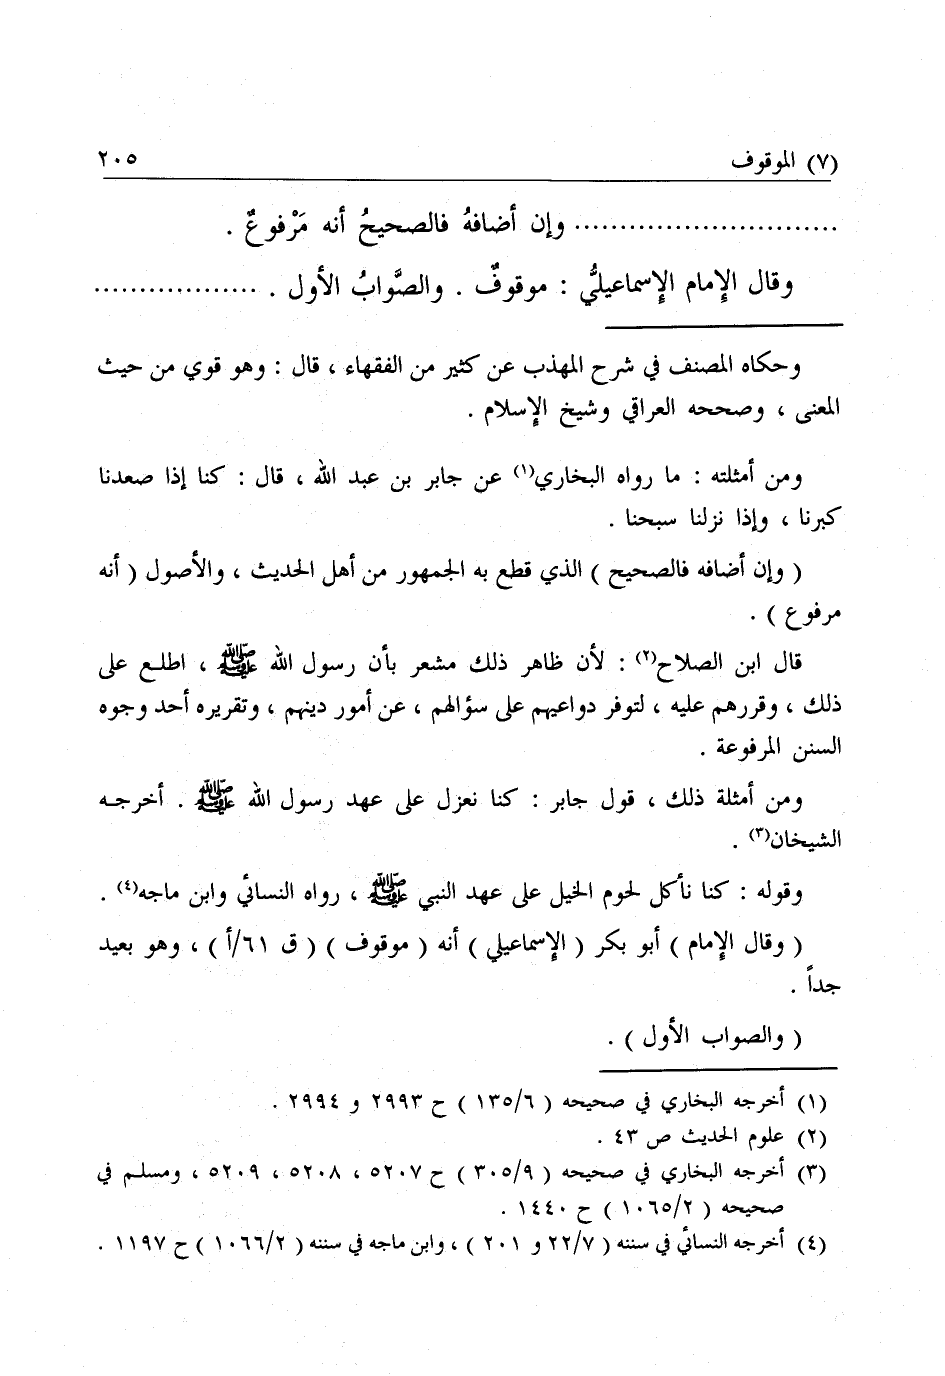 (٧) الموقوف ٢٠٥
............................. وإن أضافهُ فالصحيحُ أنه مَرْفوعٌ .
وقال الإمام الإسماعيليُّ : موقوفٌ . والصَّوابُ الأول . ..................
وحكاه المصنف في شرح المهذب عن كثير من الفقهاء ، قال : وهو قوي من حيث
المعنى ، وصححه العراقي وشيخ الإسلام .
ومن أمثلته : ما رواه البخاري(١) عن جابر بن عبد الله ، قال : كنا إذا صعدنا
كبرنا ، وإذا نزلنا سبحنا .
( وإن أضافه فالصحيح ) الذي قطع به الجمهور من أهل الحديث ، والأصول ( أنه
مرفوع ) .
قال ابن الصلاح(٢) : لأن ظاهر ذلك مشعر بأن رسول الله ﷺ ، اطلع على
ذلك ، وقررهم عليه ، لتوفر دواعيهم على سؤالهم ، عن أمور دينهم ، وتقريره أحد وجوه
السنن المرفوعة .
ومن أمثلة ذلك ، قول جابر : كنا نعزل على عهد رسول الله ﷺ . أخرجه
الشيخان(٣) .
وقوله : كنا نأكل لحوم الخيل على عهد النبي ﷺ ، رواه النسائي وابن ماجه(٤) .
( وقال الإمام ) أبو بكر ( الإسماعيلي ) أنه ( موقوف ) ( ق ٦١/أ ) ، وهو بعيد
جداً .
( والصواب الأول ) .
(١) أخرجه البخاري في صحيحه ( ١٣٥/٦ ) ح ٢٩٩٣ و ٢٩٩٤ .
(٢) علوم الحديث ص ٤٣ .
(٣) أخرجه البخاري في صحيحه ( ٣٠٥/٩ ) ح ٥٢٠٧ ، ٥٢٠٨ ، ٥٢٠٩ ، ومسلم في
صحيحه ( ١٠٦٥/٢ ) ح ١٤٤٠ .
(٤) أخرجه النسائي في سننه ( ٢٢/٧ و ٢٠١ ) ، وابن ماجه في سننه ( ١٠٦٦/٢ ) ح ١١٩٧ .